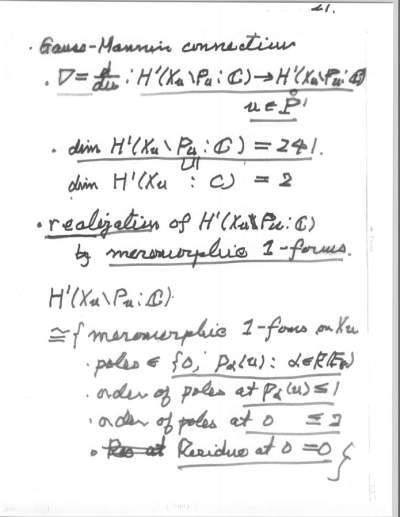 21.
· Gauss-Mannin connection
· ∇ = d/du : H¹(Xu \ Pu : ℂ) → H¹(Xu \ Pu : ℂ)
u ∈ P̊¹
· dim H¹(Xu \ Pu : ℂ) = 241.
∪∥
dim H¹(Xu : ℂ) = 2
· realization of H¹(Xu \ Pu : ℂ)
by meromorphic 1-forms.
H¹(Xu \ Pu : ℂ)
≅ { meromorphic 1-forms on Xu
· poles ∈ {0, Pα(u) : α ∈ R(E₈)
· order of poles at Pα(u) ≤ 1
· order of poles at 0 ≤ 2
· Residue at 0 = 0 }